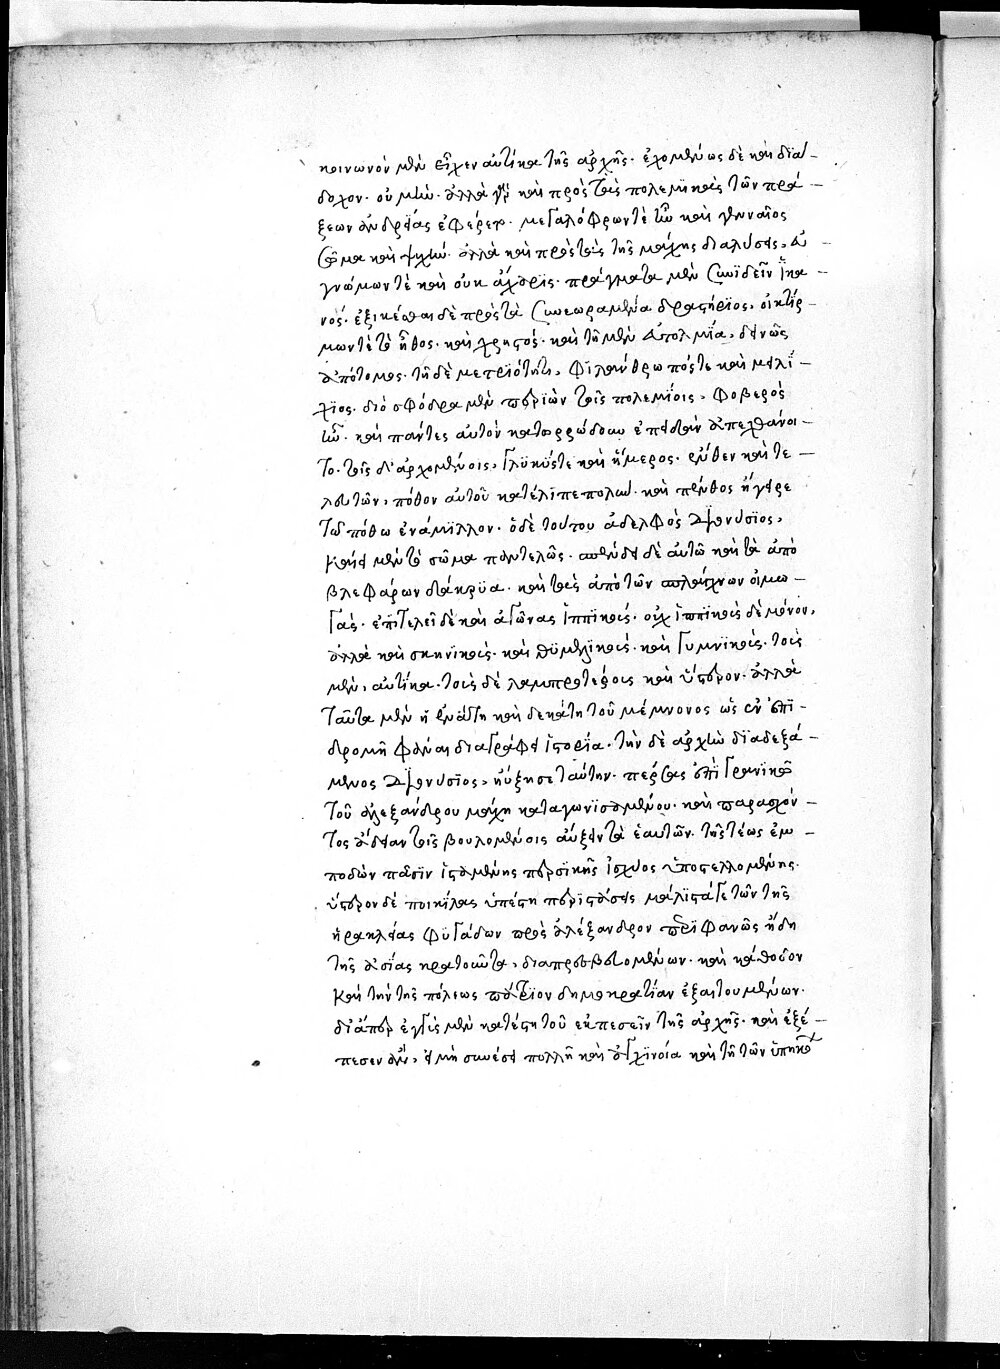 κοινωνὸν μὲν εἶχεν αὐτίκα τῆς ἀρχῆς· ἐχομένως δὲ καὶ διά-
δοχον· οὐ μὴν· ἀλλὰ γὰρ καὶ πρὸς τὰς πολεμικὰς τῶν πρά-
ξεων ἀνδρείας ἐφέρετο· μεγαλόφρων τὲ ἦν καὶ γενναῖος
σῶμα καὶ ψυχήν· ἀλλὰ καὶ πρὸς τὰς τῆς μάχης διαλύσεις, εὐ-
γνώμων τὲ καὶ οὐκ ἄχαρις· πράγματα μὲν συνϊδεῖν ἱκα-
νός· ἐξικέσθαι δὲ πρὸς τὰ συνεωραμένα δραστήριος, οἰκτίρ-
μων τὲ τὸ ἦθος· καὶ χρηστός· καὶ τῆ μὲν εὐτολμία, δεινῶς
ἀπότομος· τῆ δὲ μετριότητι, φιλάνθρωπός τε καὶ μειλί-
χιος· διὸ σφόδρα μὲν περιὼν τοῖς πολεμίοις, φοβερὸς
ἦν· καὶ πάντες αὐτὸν κατωρρώδουν ἐπειδὰν ἀπεχθάνοι-
το· τοῖς δ' ἀρχομένοις, γλυκύς τε καὶ ἥμερος· ἔνθεν καὶ τε-
λευτῶν, πόθον αὐτοῦ κατέλιπε πολὺν· καὶ πένθος ἤγειρε
τῶ πόθω ἐνάμιλλον· ὁ δὲ τούτου ἀδελφὸς Διονύσιος,
καίει μὲν τὸ σῶμα πολυτελῶς· σπένδει δὲ αὐτῶ καὶ τὰ ἀπὸ
βλεφάρων δάκρυα· καὶ τὰς ἀπὸ τῶν σπλάγχνων οἰμω-
γάς· ἐπιτελεῖ δὲ καὶ ἀγῶνας ἱππικούς· οὐχ ἱππικοὺς δὲ μόνον,
ἀλλὰ καὶ σκηνικοὺς· καὶ θυμελικούς· καὶ γυμνικούς· τοὺς
μὲν, αὐτίκα· τοὺς δὲ λαμπροτέρους καὶ ὕστερον· ἀλλὰ
ταῦτα μὲν ἡ ἐνάτη καὶ δεκάτη τοῦ μέμνονος ὡς ἐν ἐπι-
δρομῆ φάναι διαγράφει ἱστορία· τὴν δὲ ἀρχὴν διαδεξά-
μενος Διονύσιος, ηὔξησε ταύτην· πέρσας ἐπὶ Γρανικῶ
τοῦ ἀλεξάνδρου μάχη καταγωνισαμένου· καὶ παρασχόν-
τος ἄδειαν τοῖς βουλομένοις αὔξειν τὰ ἑαυτῶν· τῆς τέως ἐμ-
ποδὼν πᾶσιν ἱσταμένης περσικῆς ἰσχύος ὑποστελλομένης·
ὕστερον δὲ ποικίλας ὑπέστη περιστάσεις μάλιστά γε τῶν τῆς
ἡρακλείας φυγάδων πρὸς ἀλέξανδρον περιφανῶς ἤδη
τῆς ἀσίας κρατοῦντα, διαπρεσβευομένων· καὶ κάθοδον
καὶ τὴν τῆς πόλεως πάτριον δημοκρατίαν ἐξαιτουμένων·
δι' ἅπερ ἐγγὺς μὲν κατέστη τοῦ ἐκπεσεῖν τῆς ἀρχῆς· καὶ ἐξέ-
πεσεν ἂν, εἰ μὴ συνέσει πολλῆ καὶ ἀγχινοία καὶ τῆ τῶν ὑπηκό